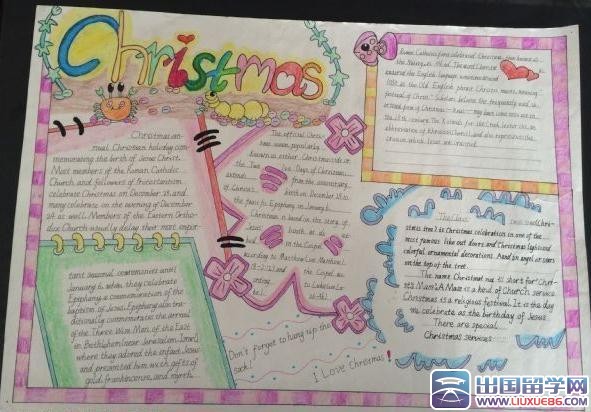 Christmas
Christmas an-
nual Christian holiday com-
memorating the birth of Jesus Christ.
Most members of the Roman Catholic
Church and followers of Protestantism
celebrate Christmas on December 25 and
many celebrate on the evening of December
24 as well. Members of the Eastern Ortho-
dox Church usually delay their most impor-
tant seasonal ceremonies until
January 6, when they celebrate
Epiphany, a commemoration of the
baptism of Jesus. Epiphany also tra-
ditionally commemorates the arrival
of the Three Wise Men of the East
in Bethlehem (near Jerusalem, Israel)
where they adored the infant Jesus
and presented him with gifts of
gold, frankincense, and myrrh.
The official Christ-
mas season, popularly
known as either Christmastide or
the Twelve Days of Christmas,
extends from the anniversary
of Christ's birth on December 25 to
the feast of Epiphany on January 6.
Christmas is based on the story of
Jesus' birth as
in the Gospel
according to Matthew (see Matthew 1:
18-2:12) and the Gospel ac-
cording to Luke (see Lu-
ke
Don't forget to hang up the
sock!
I Love Christmas!
Roman Catholics first celebrated Christmas, then known as
entered the English language sometime around
in the Old English phrase
festival of Christ." Scholars believe the frequently used
shortened form of Christmas—Xmas—may have come into use in
the 13th century. The X stands for the Greek letter chi, an
abbreviation of Khristos (Christ), and also represents the
cross on which Jesus was crucified.
Chri-
stmas tree) is Christmas celebration in one of the
most famous
colorful ornamental decorations. And an angel or stars
on the top of the tree.
The name Christmas is short for "Chri-
st's Mass". A Mass is a kind of Church service.
Christmas is a religious festival. It is the day
we celebrate as the birthday of Jesus.
There are special
Christmas services
出国留学网
WWW.LIUXUE86.COM